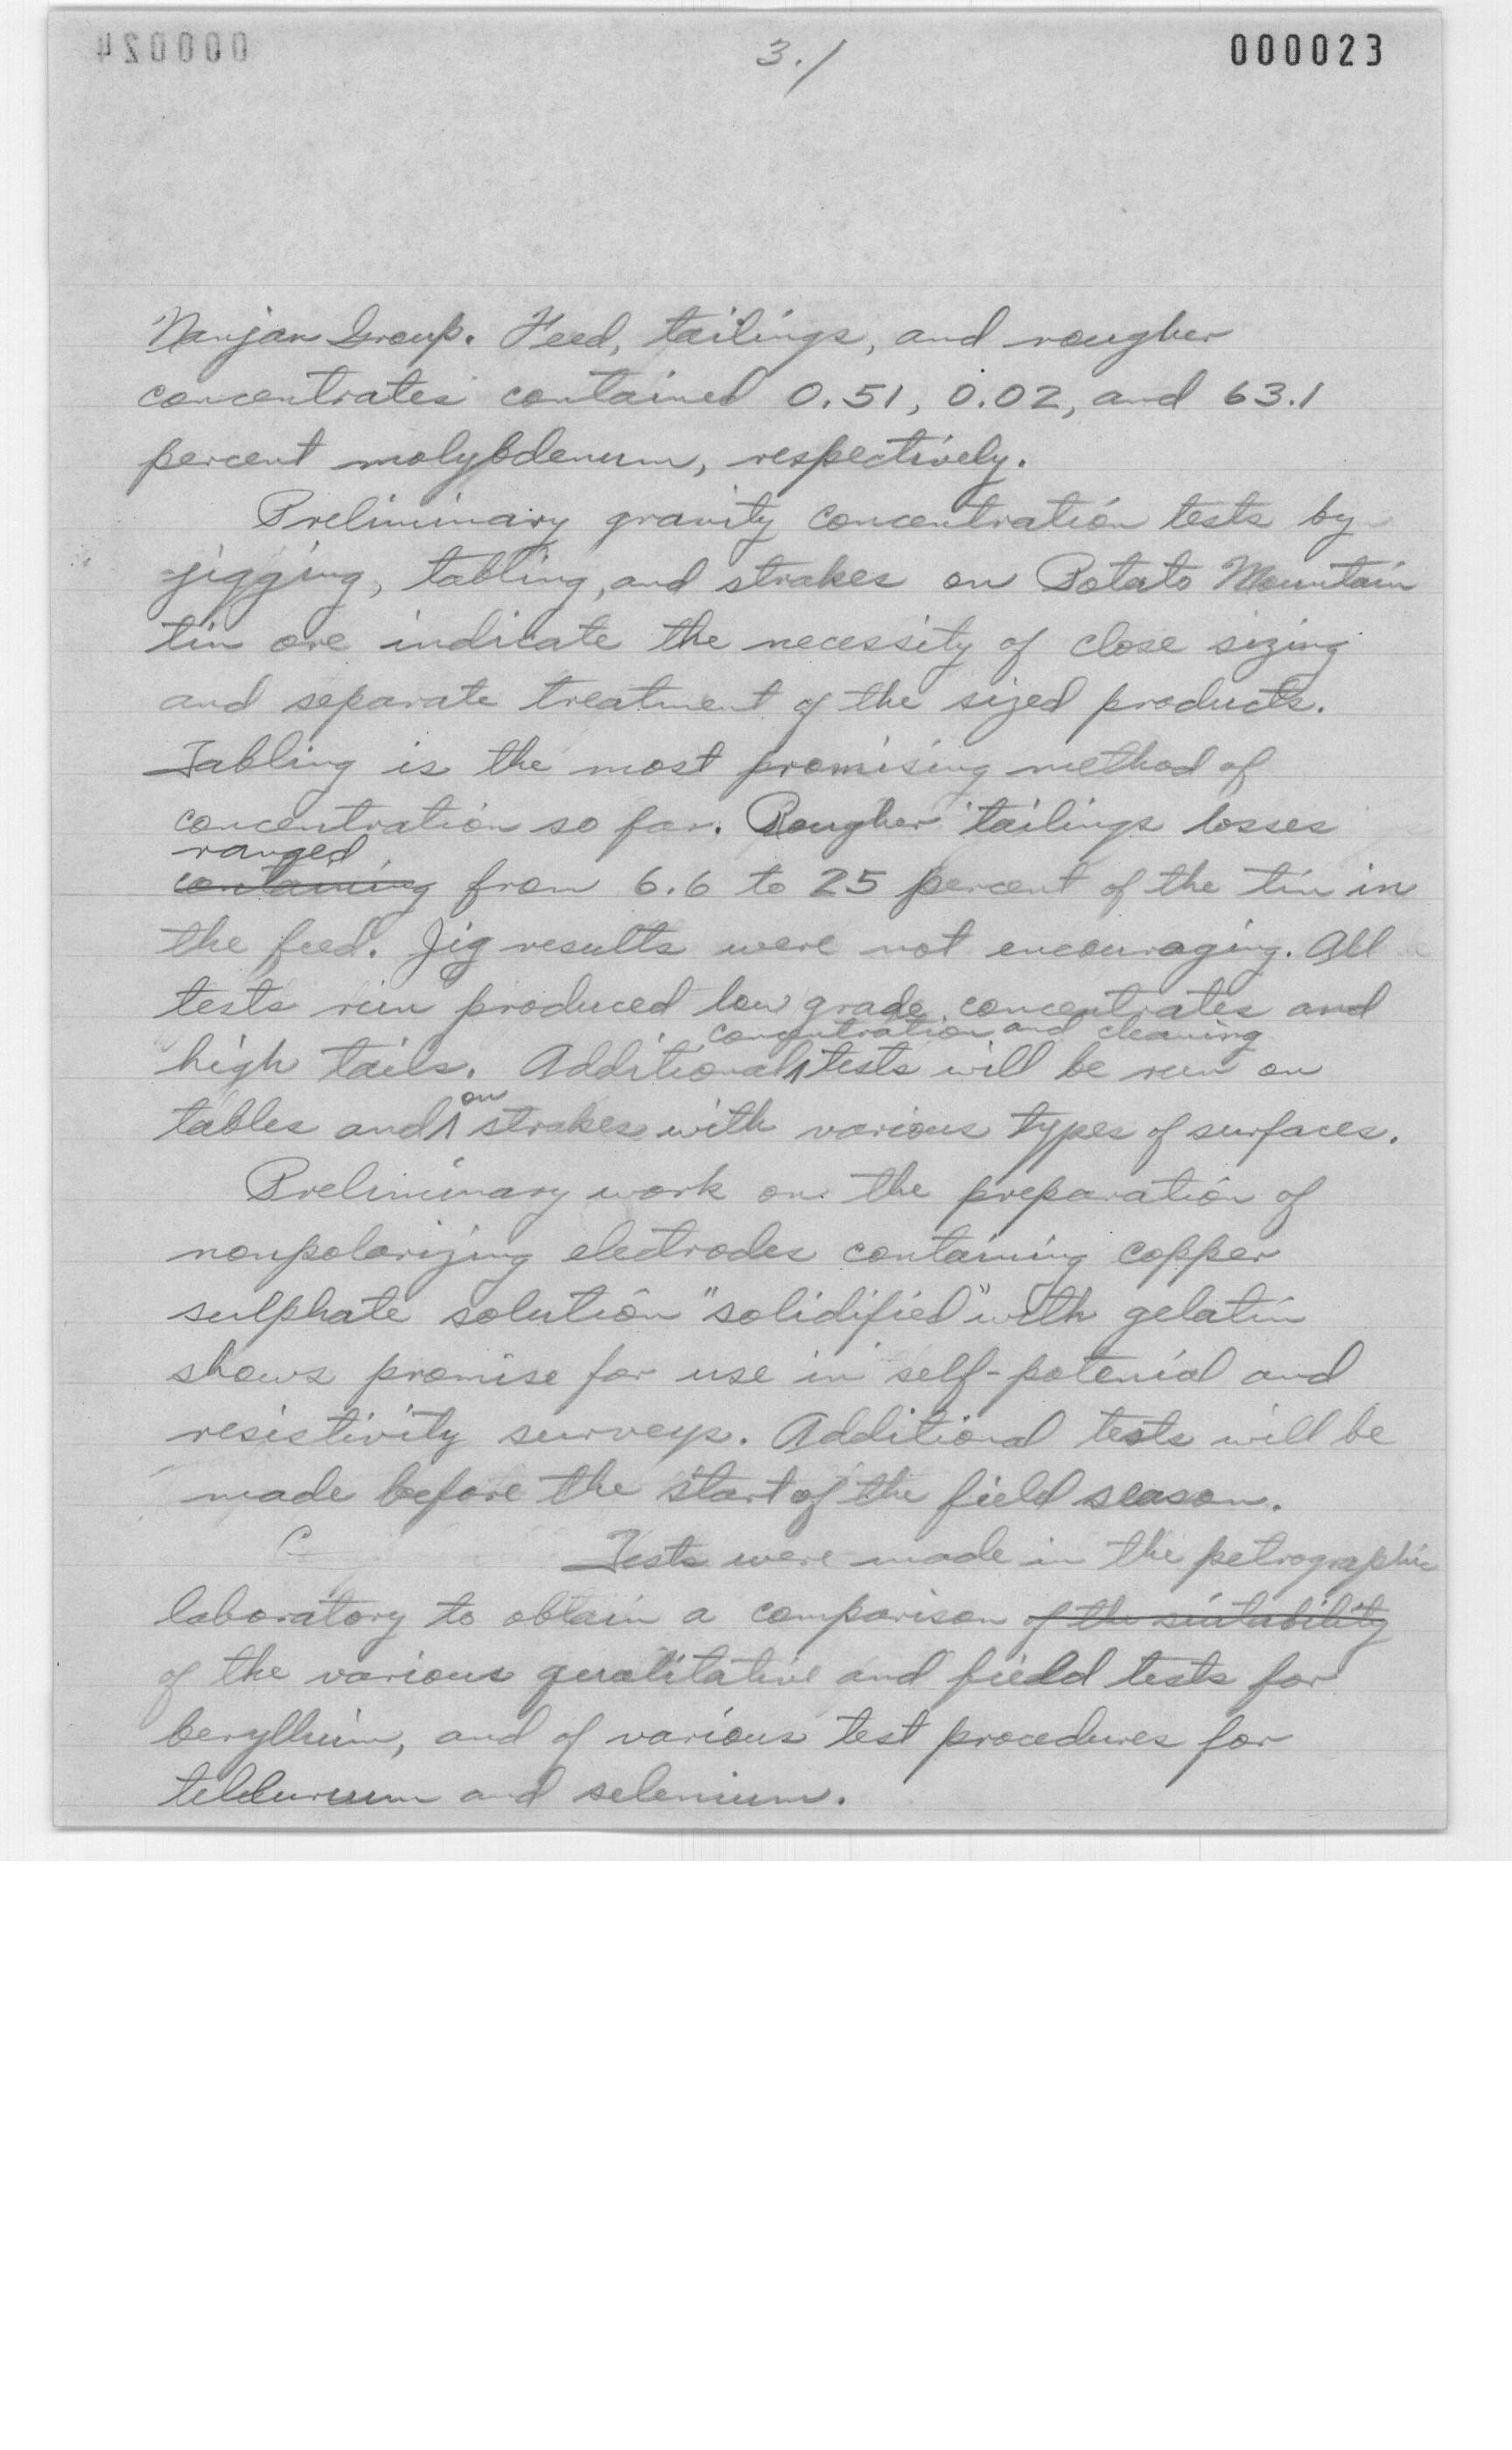 000023
3./
Feed, tailings, and rougher
concentrates contained 0.51, 0.02, and 63.1
percent molybdenum, respectively.
Preliminary gravity concentration tests by
jigging, tabling, and strakes on Potato Mountain
tin ore indicate the necessity of close sizing
and separate treatment of the sized products.
Tabling is the most promising method of
concentration so far. Rougher tailings losses
ranged
containing from 6.6 to 25 percent of the tin in
the feed. Jig results were not encouraging. All
tests run produced low grade concentrates and
concentration and cleaning
high tails. Additional tests will be run on
on
tables and strakes with various types of surfaces.
Preliminary work on the preparation of
nonpolarizing electrodes containing copper
sulphate solution "solidified" with gelatin
shows promise for use in self-potenial and
resistivity surveys. Additional tests will be
made before the start of the field season.
Tests were made in the petrographic
laboratory to obtain a comparison of the suitability
of the various qualitative and field tests for
beryllium, and of various test procedures for
tellurium and selenium.